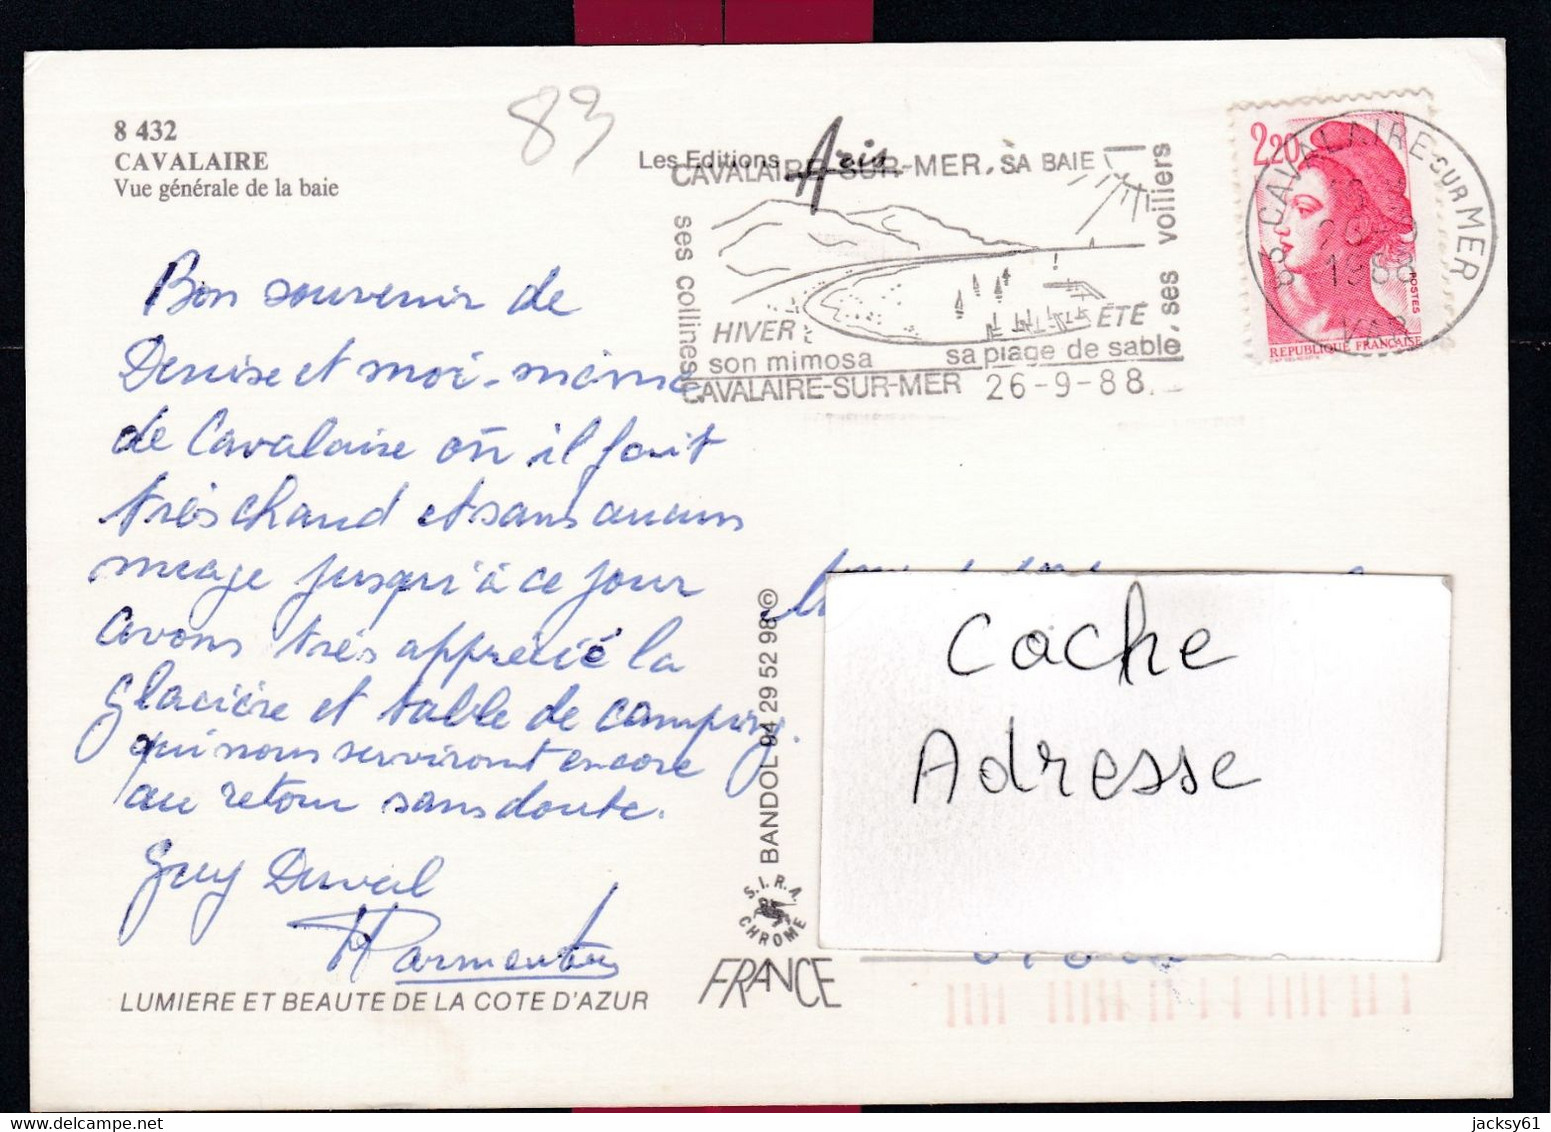 83
8 432
CAVALAIRE
Vue générale de la baie
Les Editions Aris
CAVALAIRE-SUR-MER, SA BAIE
ses collines
ses voiliers
HIVER
son mimosa
ÉTÉ
sa plage de sable,
CAVALAIRE-SUR-MER 26-9-88
2,20
POSTES
REPUBLIQUE FRANÇAISE
83 CAVALAIRE-SUR MER
1988
VAR
Bon souvenir de
Denise et moi-même
de Cavalaire où il fait
très chaud et sans aucun
nuage jusqu'à ce jour
avons très apprécié la
glacière et table de camping.
qui nous serviront encore
au retour sans doute.
Guy Duval
Parmentier
LUMIERE ET BEAUTE DE LA COTE D'AZUR
BANDOL 94 29 52 98 ©
S.I.R.A.
CHROME
FRANCE
Cache
Adresse
jacksy61